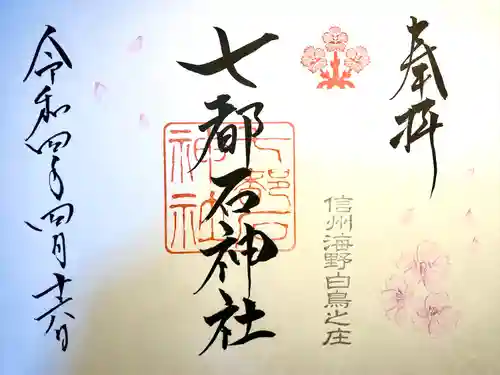 奉拝
信州海野白鳥之庄
七都石神社
七都石神社
令和四年四月十六日